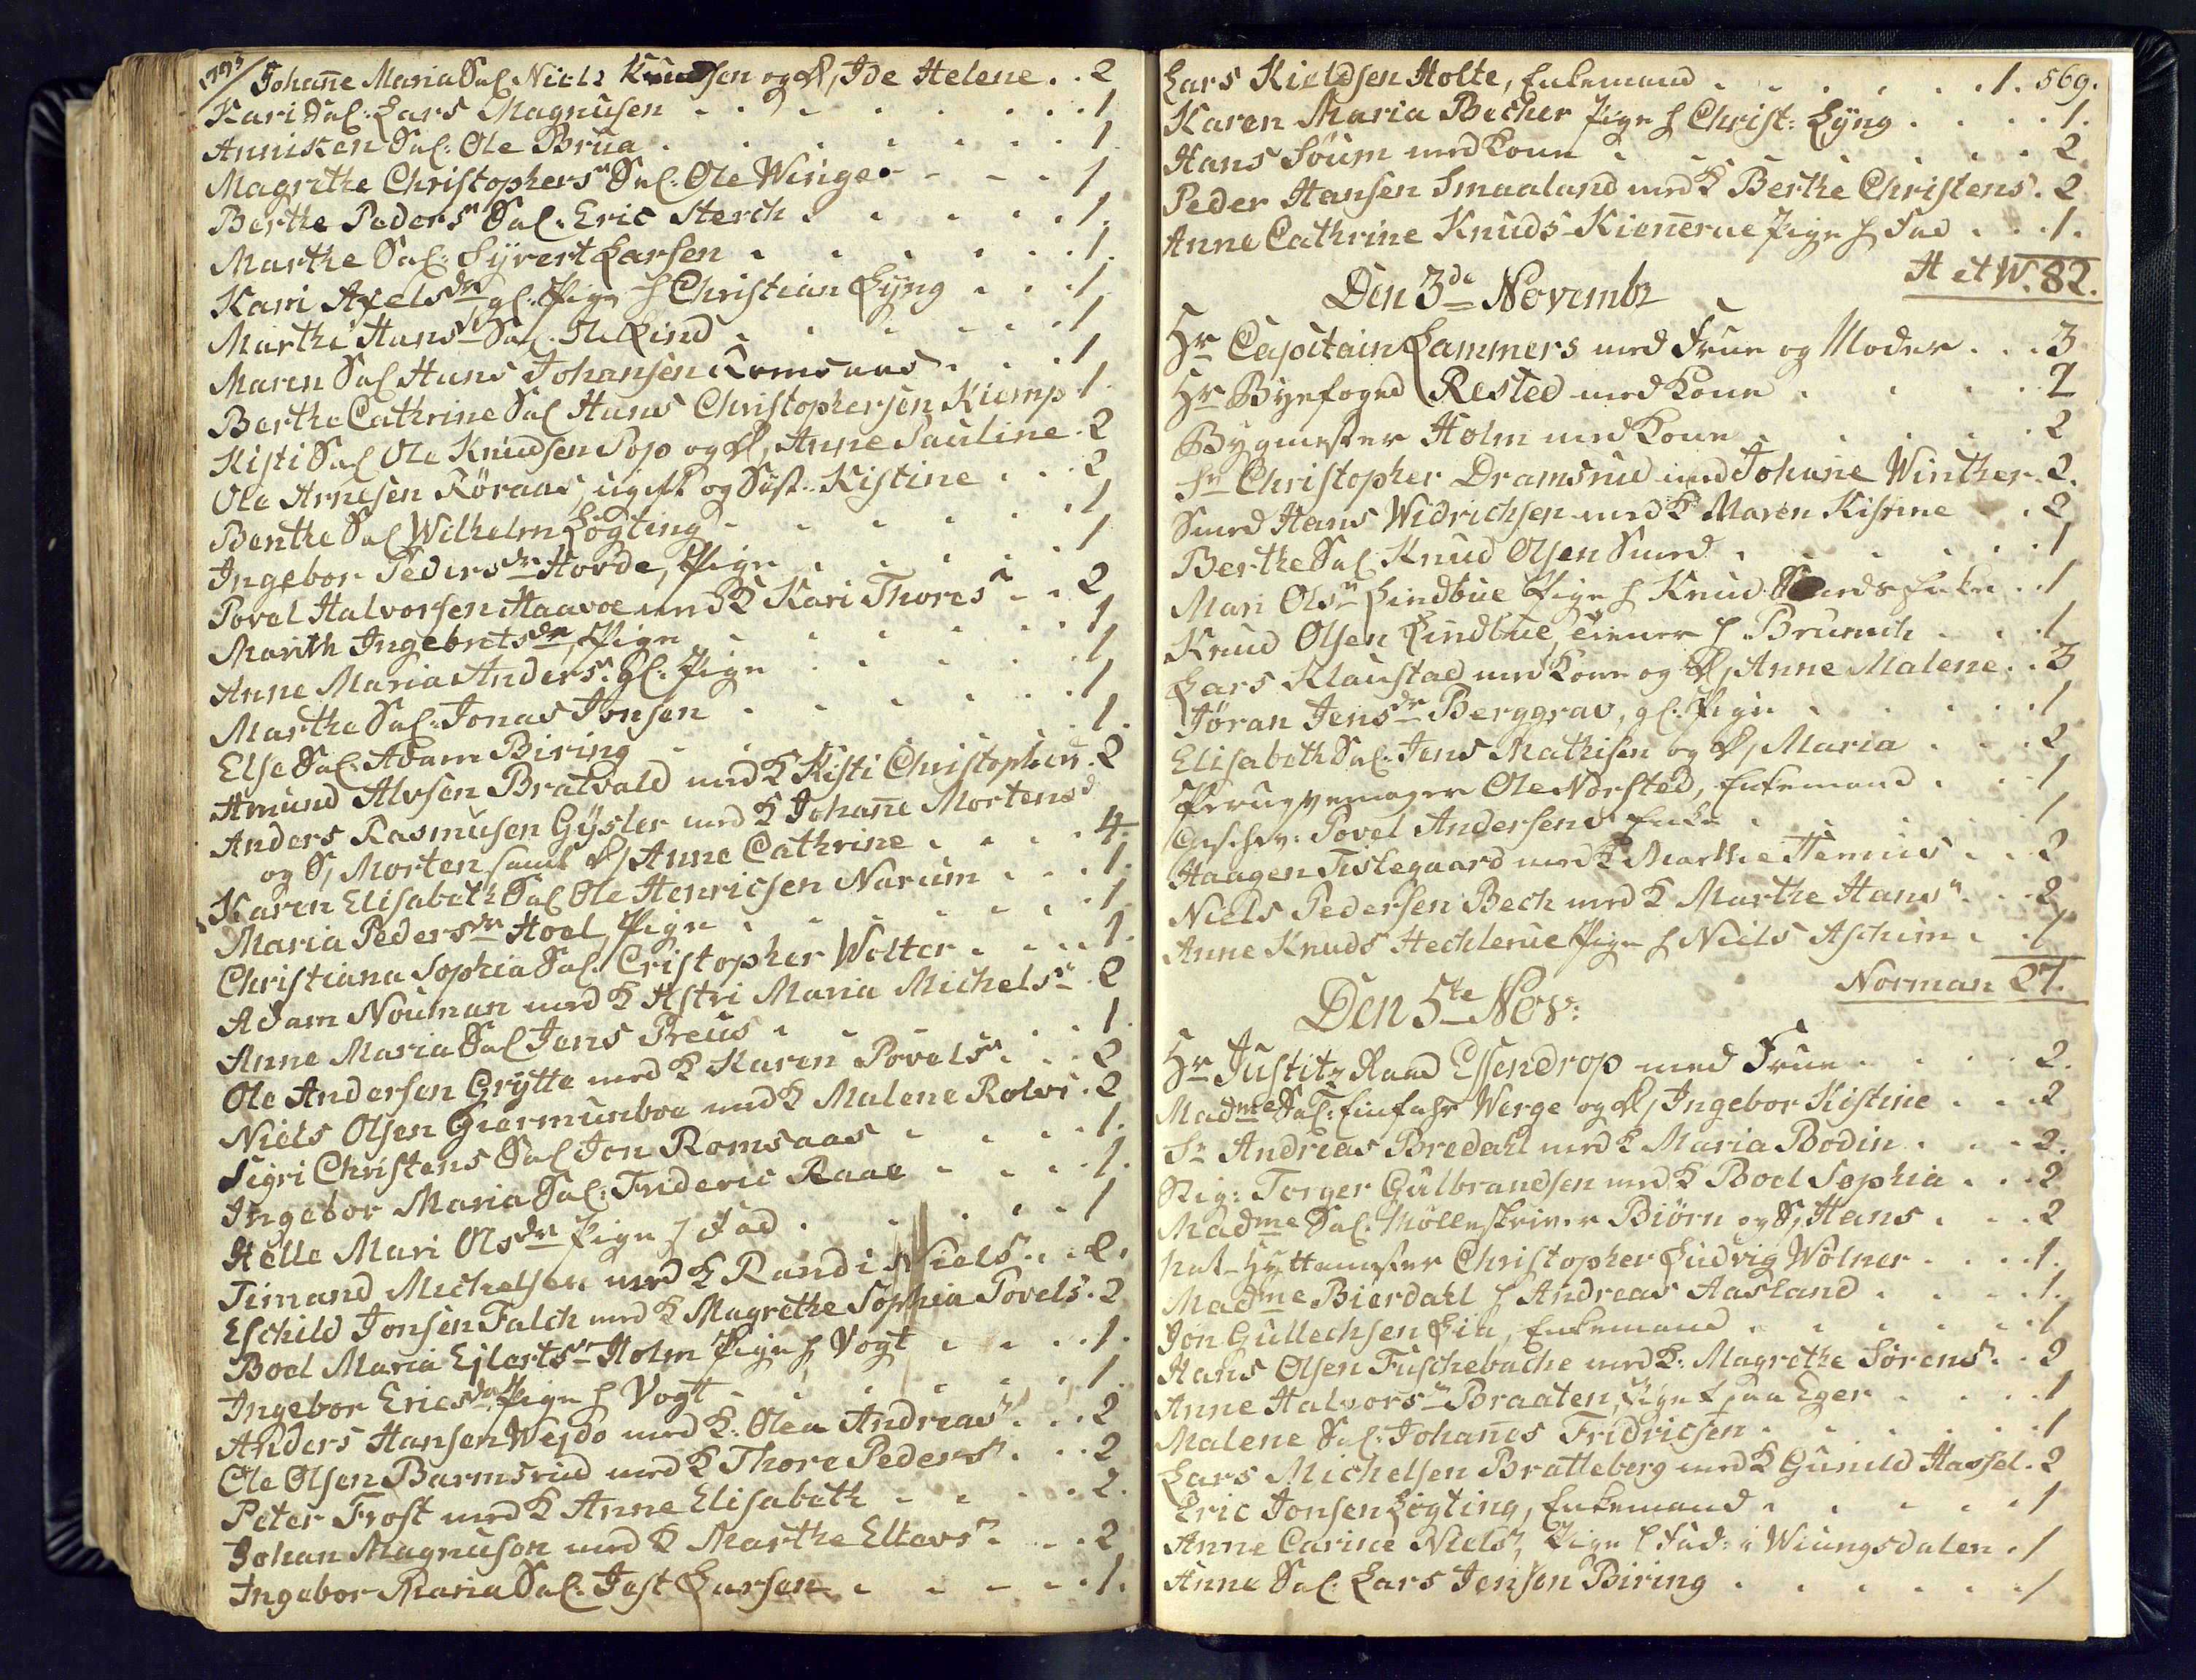 1793/ Johan̄e Maria Sal. Niels Knudsen og D, Ide Helene . . 2
Kari Sal. Lars Magnusen . . . . . . 1
Annisten Sal. Ole Brua . . . . . . 1
Magrethe Christophersn Sal. Ole Winge . - - - . 1
Berthe Pedersn Sal. Eric Sterch . . . . . 1.
Marthe Sal. Syvert Larsen . . . . . 1.
Kari Axelsdr gl. Pige h Christian Lyng . . . 1
Marthe Hansdr Sal. Ole Lind . . . . . 1
Maren Sal Hans Johansen Romsaas . . . 1
Berthe Cathrine Sal Hans Christophersen Kiemp 1.
Kisti Sal Ole Knudsen Sop og D, Anne Pauline . 2
Ole Arnesen Röraas, ugift og Søst. Kistine . . 2
Benthe Sal Wilhelm Løgting . . . . . 1
Ingebor Pedersdr Hovde, Pige . . . . . 1
Povel Halvorsen Haavoe med K Kari Thoresn . . 2
Marith Ingebretsdr, Pige . . . . . 1
Anne Maria Andersn gl. Pige . . . . . 1
Marthe Sal. Jonas Jonsen . . . . . 1
Else Sal. Adam Biring . . . . . 1.
Amund Alvsen Bratvald med K Kisti Christophers . 2
Anders Rasmusen Gysler med K Johan̄e Mortensd
og S, Morten samt D, Anne Cathrine . . . . 4.
Karen Elisabeth Sal Ole Henricsen Narum . . . 1.
Maria Pedersdr Hoel, Pige . . . . . 1
Christiana Sophia Sal. Cristopher Wolter . . . . 1.
Adam Nouman med K Astri Maria Michelsn . 2
Anne Maria Sal Jens Preus . . . . . 1.
Ole Andersen Grytte med K Karen Povelsn . . . 2
Niels Olsen Giermunboe med K Malene Rolvs . 2
Sigri Christens Sal Jon Romsaas . . . . 1.
Ingebor Maria Sal. Frideric Raae . . . . 1.
Helle Mari Olsdr Pige h Fad . . . . . 1
Timand Michelsen med K Randi Nielsn . . . 2.
Eschild Jonsen Falch med K Magrethe Sophia Povels . 2
Boel Maria Ejlertsn Holm Pige h Vogt . . . . 1.
Ingebor Ericsdr Pige h Vogt . . . . . 1.
Anders Hansen Wejdo med K. Olea Andreasn . . . 2
Ole Olsen Barmsrud med K Thore Pedersn . . . 2
Peter Frost med K Anne Elisabeth . . . . . 2.
Johan Magnuson med K Marthe Ellevsn . . . 2
Ingebor Maria Sal. Jost Larsen . . . . . 1.
Lars Kieldsen Holte, Enkemand . . . . . . 1. 569.
Karen Maria Becher Pige h Christ: Lyng . . . . 1.
Hans Søum med Kone . . . . . . 2
Peder Hansen Smaaland med K Berthe Christens . 2
Anne Cathrine Knuds Kien̄erue Pige h Fad . . . 1.
H et W. 82.
Den 3de Novembr
Hr Capitain Lammers med Frue og Moder . . . 3
Hr Byefoged Rested med Kone . . . . . 2
Bygmester Holm med Kone . . . . . 2
Sr Christopher Dramsrud med Johan̄e Winther . 2.
Smed Hans Widrichsen med K Maren Kistine . . 2
Berthe Sal. Knud Olsen Smed . . . . . 1
Mari Olsn Lindbue Pige h Knud Smeds Enke . . 1
Knud Olsen Lindbue tiener h Brunich . . . . 1
Lars Klaustad med Kone og D, Anne Malene . . 3
Jøran Jensdr Berggrav, gl. Pige . . . . . 1
Elisabeth Sal. Jens Mathisen og D, Maria . . . 2
Perugvemager Ole Nørsted, Enkemand . . . 1
Povel Andersens Enke . . . . . 1
Haagen Tislegaard med K Marthe Hennis . . . 2
Niels Pedersen Bech med K Marthe Hansn . . . 2
Anne Knuds Hechlerue Pige h Niels Aschim . . 1
Norman 27.
Den 5te Nov:
Hr Justitz Raad Essendrop med Frue . . . . . 2.
Madme Sal. Werge og D, Ingebor Kistine . . . 2
Sr Andreas Bredahl med K Maria Bodin . . . . 2.
Stig: Torger Gulbrandsen med K Boel Sophia . . . 2
Madme Sal. Mølleskriver Biørn og S, Hans . . . 2
Hyttemester Christopher Ludvig Wölner . . . . 1.
Madme Bierdahl h Andreas Aasland . . . . 1.
Jon Gullechsen Lia, Enkemand . . . . . 1
Hans Olsen Fuschebache med K. Magrethe Sørensn . . 2
Anne Halvorsn Braaten, Pige paa Eger . . . . 1
Malene Sal. Johan̄es Fridricsen . . . . . 1
Lars Michelsen Bratteberg med K Gunild Hassel . 2
Eric Jonsen Løgting, Enkemand . . . . . 1
Anne Carine Nielsn, Pige h Fad: i Wiungsdalen . 1
Anne Sal. Lars Jensen Biring . . . . . 1